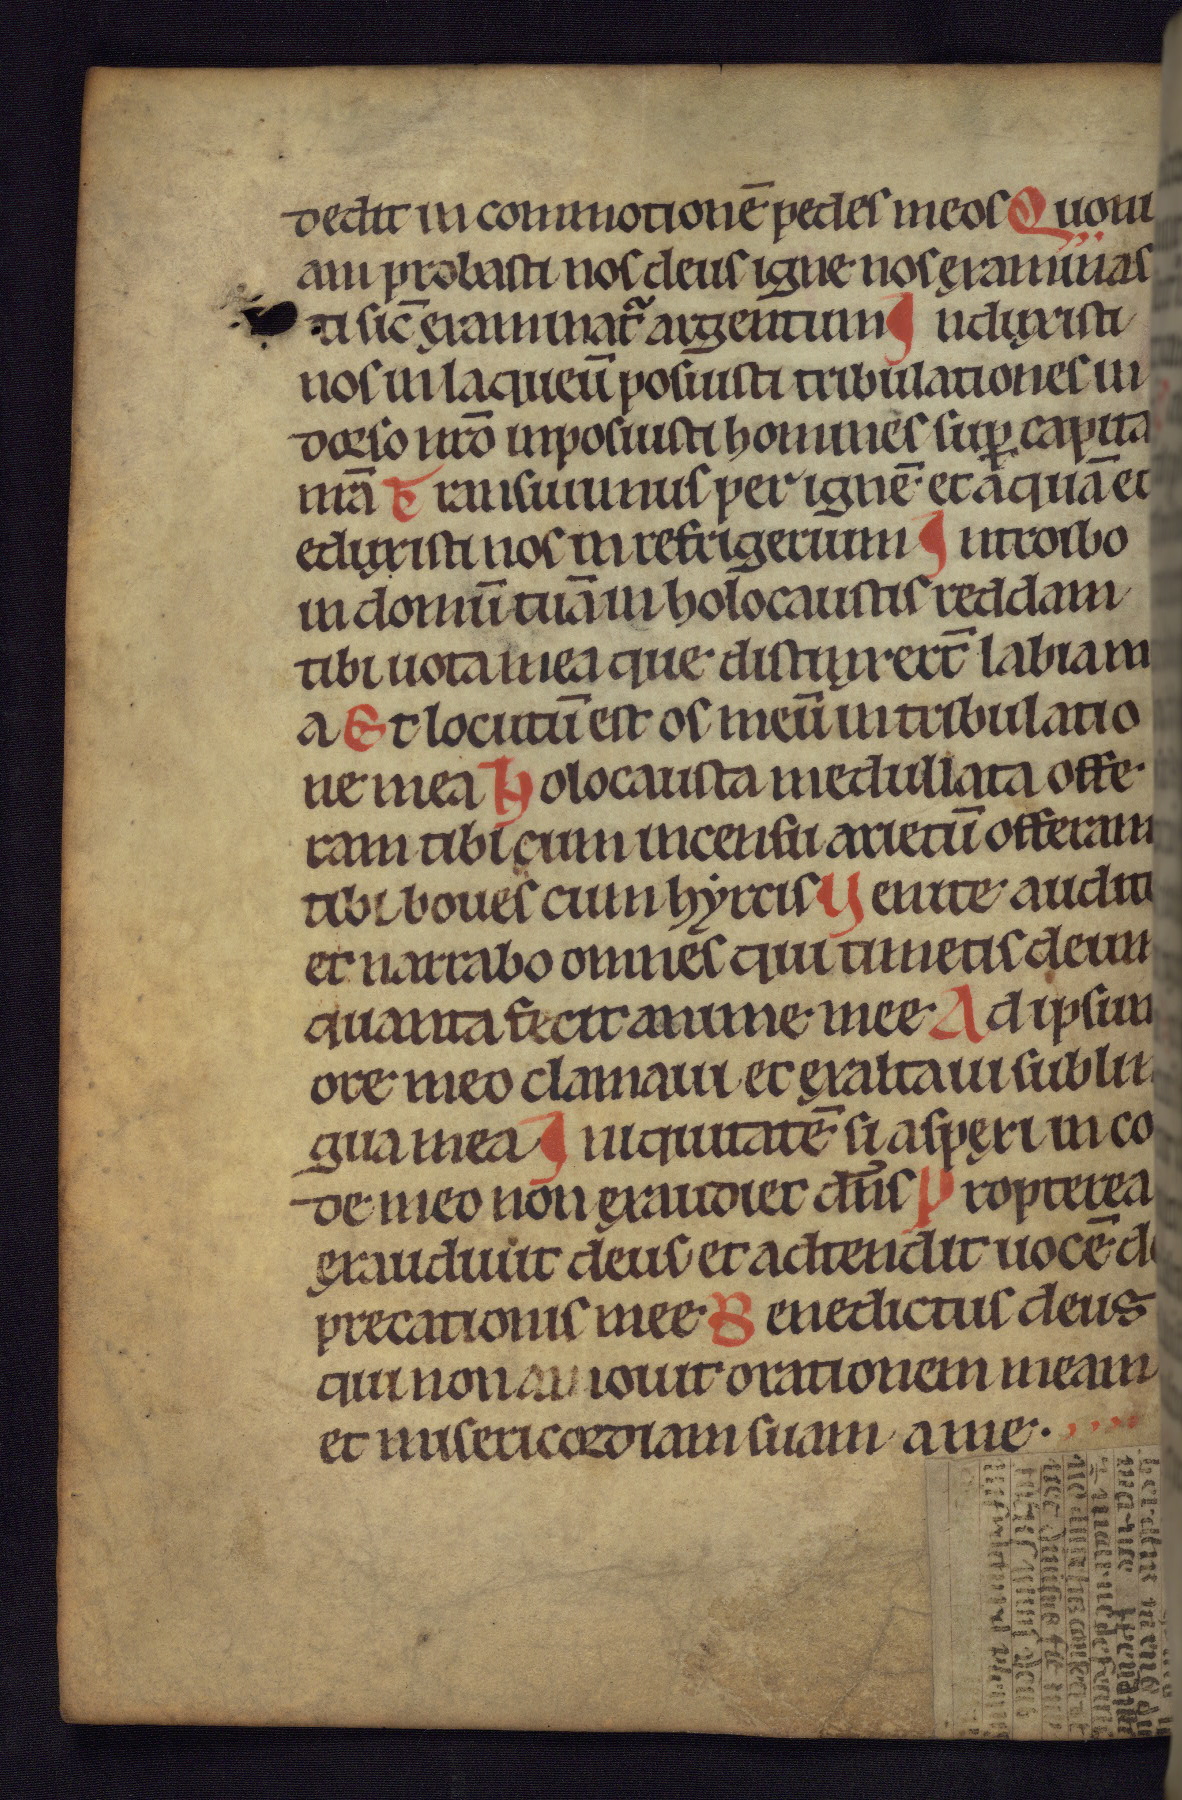 dedit in commotionē pedes meos Quoni
am probasti nos deus igne nos examinas
ti sic̄ examinat᷑ argentum Induxisti
nos in laqueū posuisti tribulationes in
dorso nr̄o inposuisti homines suꝑ capita
nr̄a Transiuimus per ignē et aquā et
eduxisti nos in refrigerium Introibo
in domū tuā in holocaustis reddam
tibi uota mea que distinxert̄ labia m
a Et locutū est os meū in tribulatio
ne mea Holocausta medullata offe
ram tibi cum incensu arietū offeram
tibi boues cum hyrcis Uenite audite
et narrabo omnes qui timetis deum
quanta fecit anime mee Ad ipsum
ore meo clamaui et exaltaui sub lin
gua mea Iniquitatē si aspexi in co
de meo non exaudiet dn̄s Propterea
exaudiuit deus et adtendit uocē de
precationis mee Benedictus deus
qui non amouit orationem meam
et misericordiam suam a me.